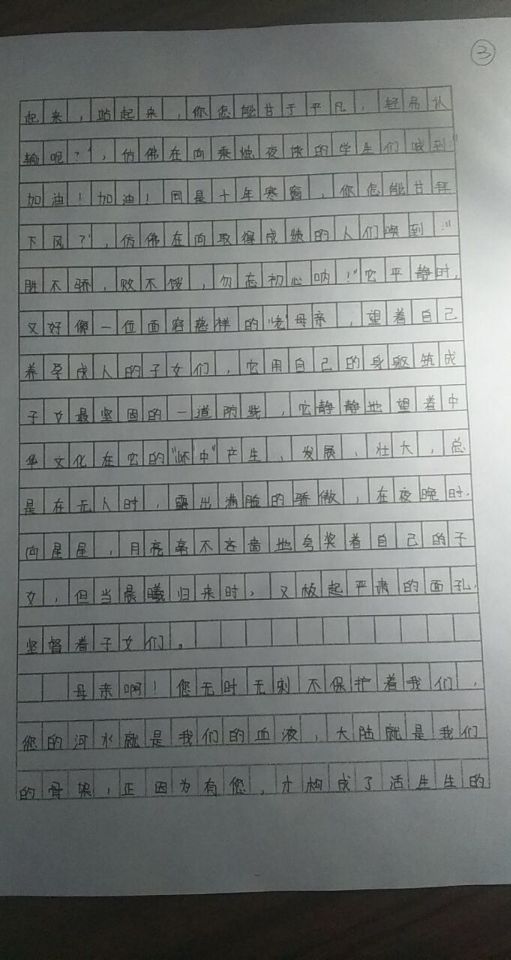 ③
起来，站起来，你怎能甘于平凡，轻易认
输呢？"，仿佛在向秉烛夜读的学生们喊到"
加油！加油！同是十年寒窗，你怎能甘拜
下风？"，仿佛在向取得成绩的人们喚到："
胜不骄，败不馁，勿忘初心呐！"它平静时，
又好像一位面容慈祥的"老"母亲，望着自己
养孕成人的子女们，它用自己的身躯筑成
子女最坚固的一道防线，它静静地望着中
华文化在它的"怀中"产生、发展、壮大，总
是在无人时，露出满脸的骄傲，在夜晚时，
向星星，月亮毫不吝啬地夸奖着自己的子
女，但当晨曦归来时，又板起严肃的面孔，
坚督着子女们。
母亲啊！您无时无刻不保护着我们，
您的河水就是我们的血液，大陆就是我们
的骨架，正因为有您，才构成了活生生的